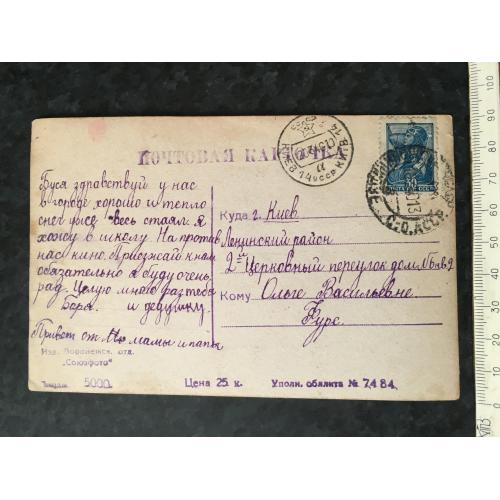 ПОЧТОВАЯ КАРТОЧКА
Буся здравствуй у нас
в городе хорошо и тепло
снег уже весь стаял. я
хожу в школу. На против
нас кино. Приезжай к нам
обязательно я буду очень
рад. Целую много раз тебя
Боря. и дедушку.
Привет от мамы и папы
Изд. Воронежск. отд.
„Союзфото“
5000.
Цена 25 к.
Уполн. облита № 7484.
Куда г. Киев
Ленинский район
2й Церковный переулок дом № 6 кв 9
Кому Ольге Васильевне
КИЇВ
УССР
С-О. АССР
30
ПОЧТА СССР
10 20 30 40 50 60 70 80 90 100